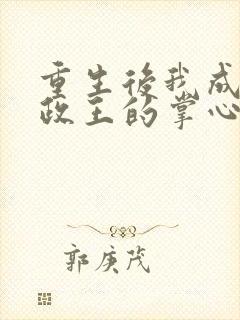 重生後我成
政王的掌心
郭庚茂